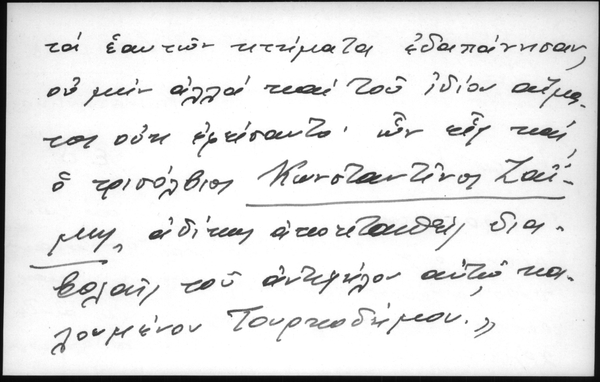 τά ἑαυτῶν κτήματα ἐδαπάνησαν,
οὐ μήν ἀλλά καί τοῦ ἰδίου αἵμα-
τος οὐκ ἐφείσαντο· ὧν εἷς καί
ὁ τρισόλβιος Κωνσταντῖνος Ζαΐ-
μης, ἀδίκως ἀποκεφαλισθείς δια-
βολαῖς τοῦ ἀντιζήλου αὐτῷ κα-
λουμένου Τουρκοδήμου.»